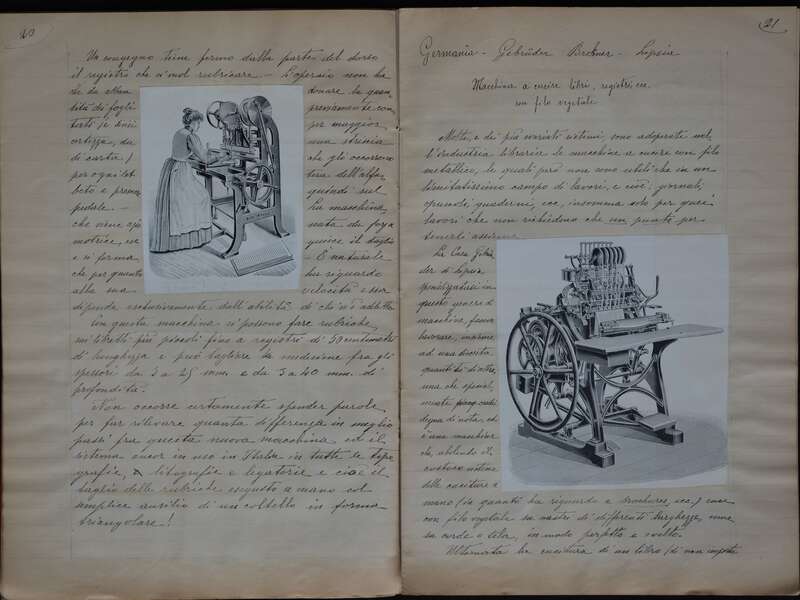 20
Un congegno tiene fermo dalla parte del dorso
il registro che si vuol rubricare. - L'operaio non ha
che da
donare la quan
tità di fogli
previamente con
tati (e
per maggior
una striscia
di carta)
che gli occorrono
per ogni
tera dell'alfa
beto e preme
quindi sul
pedale. -
La macchina,
che viene
nata da forza
motrice,
il taglio
e si ferma,
- È naturale
che per quanto
ha riguardo
alla sua
velocità esser
dipenda esclusivamente dall'abilità di chi vi è addetto.
Con questa macchina si possono fare rubriche,
nei libretti più piccoli fino a registri di 50 centimetri
di lunghezza e può tagliare la medesima fra gli
spessori da 3 a 25 mm. e da 3 a 40 mm. di
profondità.
Non occorre certamente spender parole,
per far rilevare quanta differenza in meglio
passi fra questa nuova macchina ed il
sistema ancor in uso in Italia in tutte le tipo
grafie, litografie e legatorie e cioè il
taglio delle rubriche eseguito a mano col
semplice ausilio di un coltello in forma
triangolare!
21
Germania - Gebrüder Brehmer - Lipsia
Macchina a cucire libri, registri, ecc.
con filo vegetale
Molte, e dei più svariati sistemi, sono adoperate nel
l'industria libraria le macchine a cucire con filo
metallico, le quali però non sono utili che in un
limitatissimo campo di lavori, e cioè; giornali,
opuscoli, quaderni, ecc., insomma solo per quei
lavori che non richiedono che un punto per
tenerli assieme.
La Casa Gebrü
der di Lipsia
specializzatasi in
questo genere di
macchine,
lavorare, insieme
ad una discreta
quantità di altre,
una che
mente
degna di nota, ed
è una macchina
che, abolendo il
sistema
delle cuciture a
mano (in quanto ha riguardo a brochures, ecc.) cuce
con filo vegetale su nastri di differenti larghezze, come
su corde o tela, in modo perfetto e svelto.
Ultimata la cucitura di un libro (di non importa